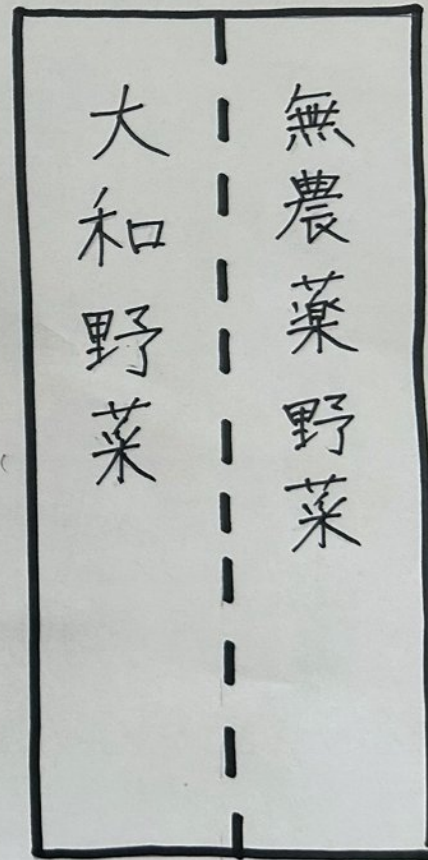 無農薬野菜
大和野菜